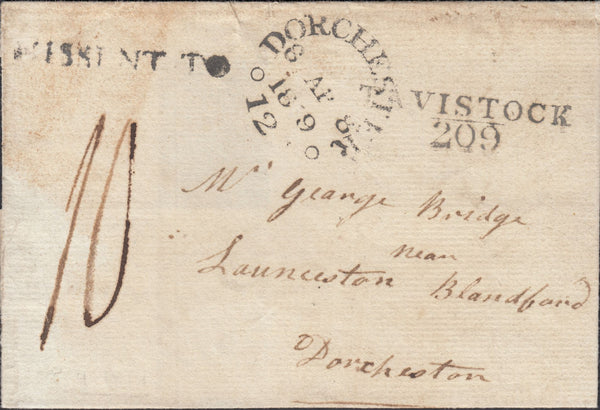 MISSENT TO
DORCHESTER
8 AP 8
1819
120
VISTOCK
209
10
Mr George Bridge
near
Launceston Blandford
Dorcheston